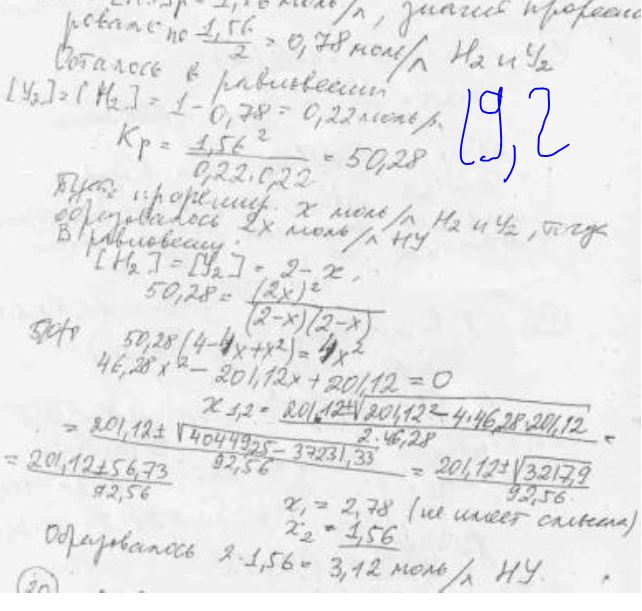 = 1,56 моль/л, значит прореаги
ровало по 1,56/2 = 0,78 моль/л H2 и У2
Осталось в равновесии
[У2] = [H2] = 1 - 0,78 = 0,22 моль/л.
19,2
Kр = 1,56²/0,22·0,22 = 50,28
Пусть прореагир. x моль/л H2 и У2, тогда
образовалось 2x моль/л HУ
В равновесии:
[H2] = [У2] = 2 - x.
50,28 = (2x)²/(2-x)(2-x)
50,28(4-4x+x²) = 4x²
46,28x² - 201,12x + 201,12 = 0
x 1,2 = 201,12±√201,12² - 4·46,28·201,12/2·46,28 =
= 201,12± √40449,25 - 37231,33/92,56 = 201,12±√3217,9/92,56
= 201,12±56,73/92,56
x1 = 2,78 (не имеет смысла)
x2 = 1,56
Образовалось 2·1,56 = 3,12 моль/л HУ.
20